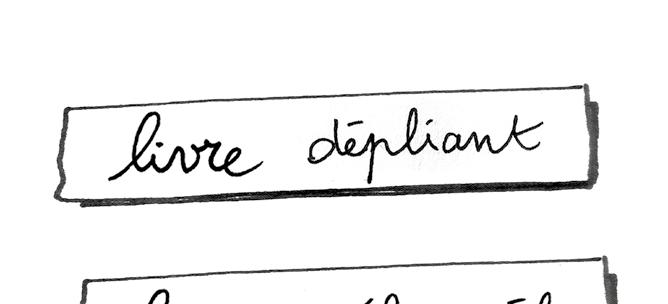 livre dépliant